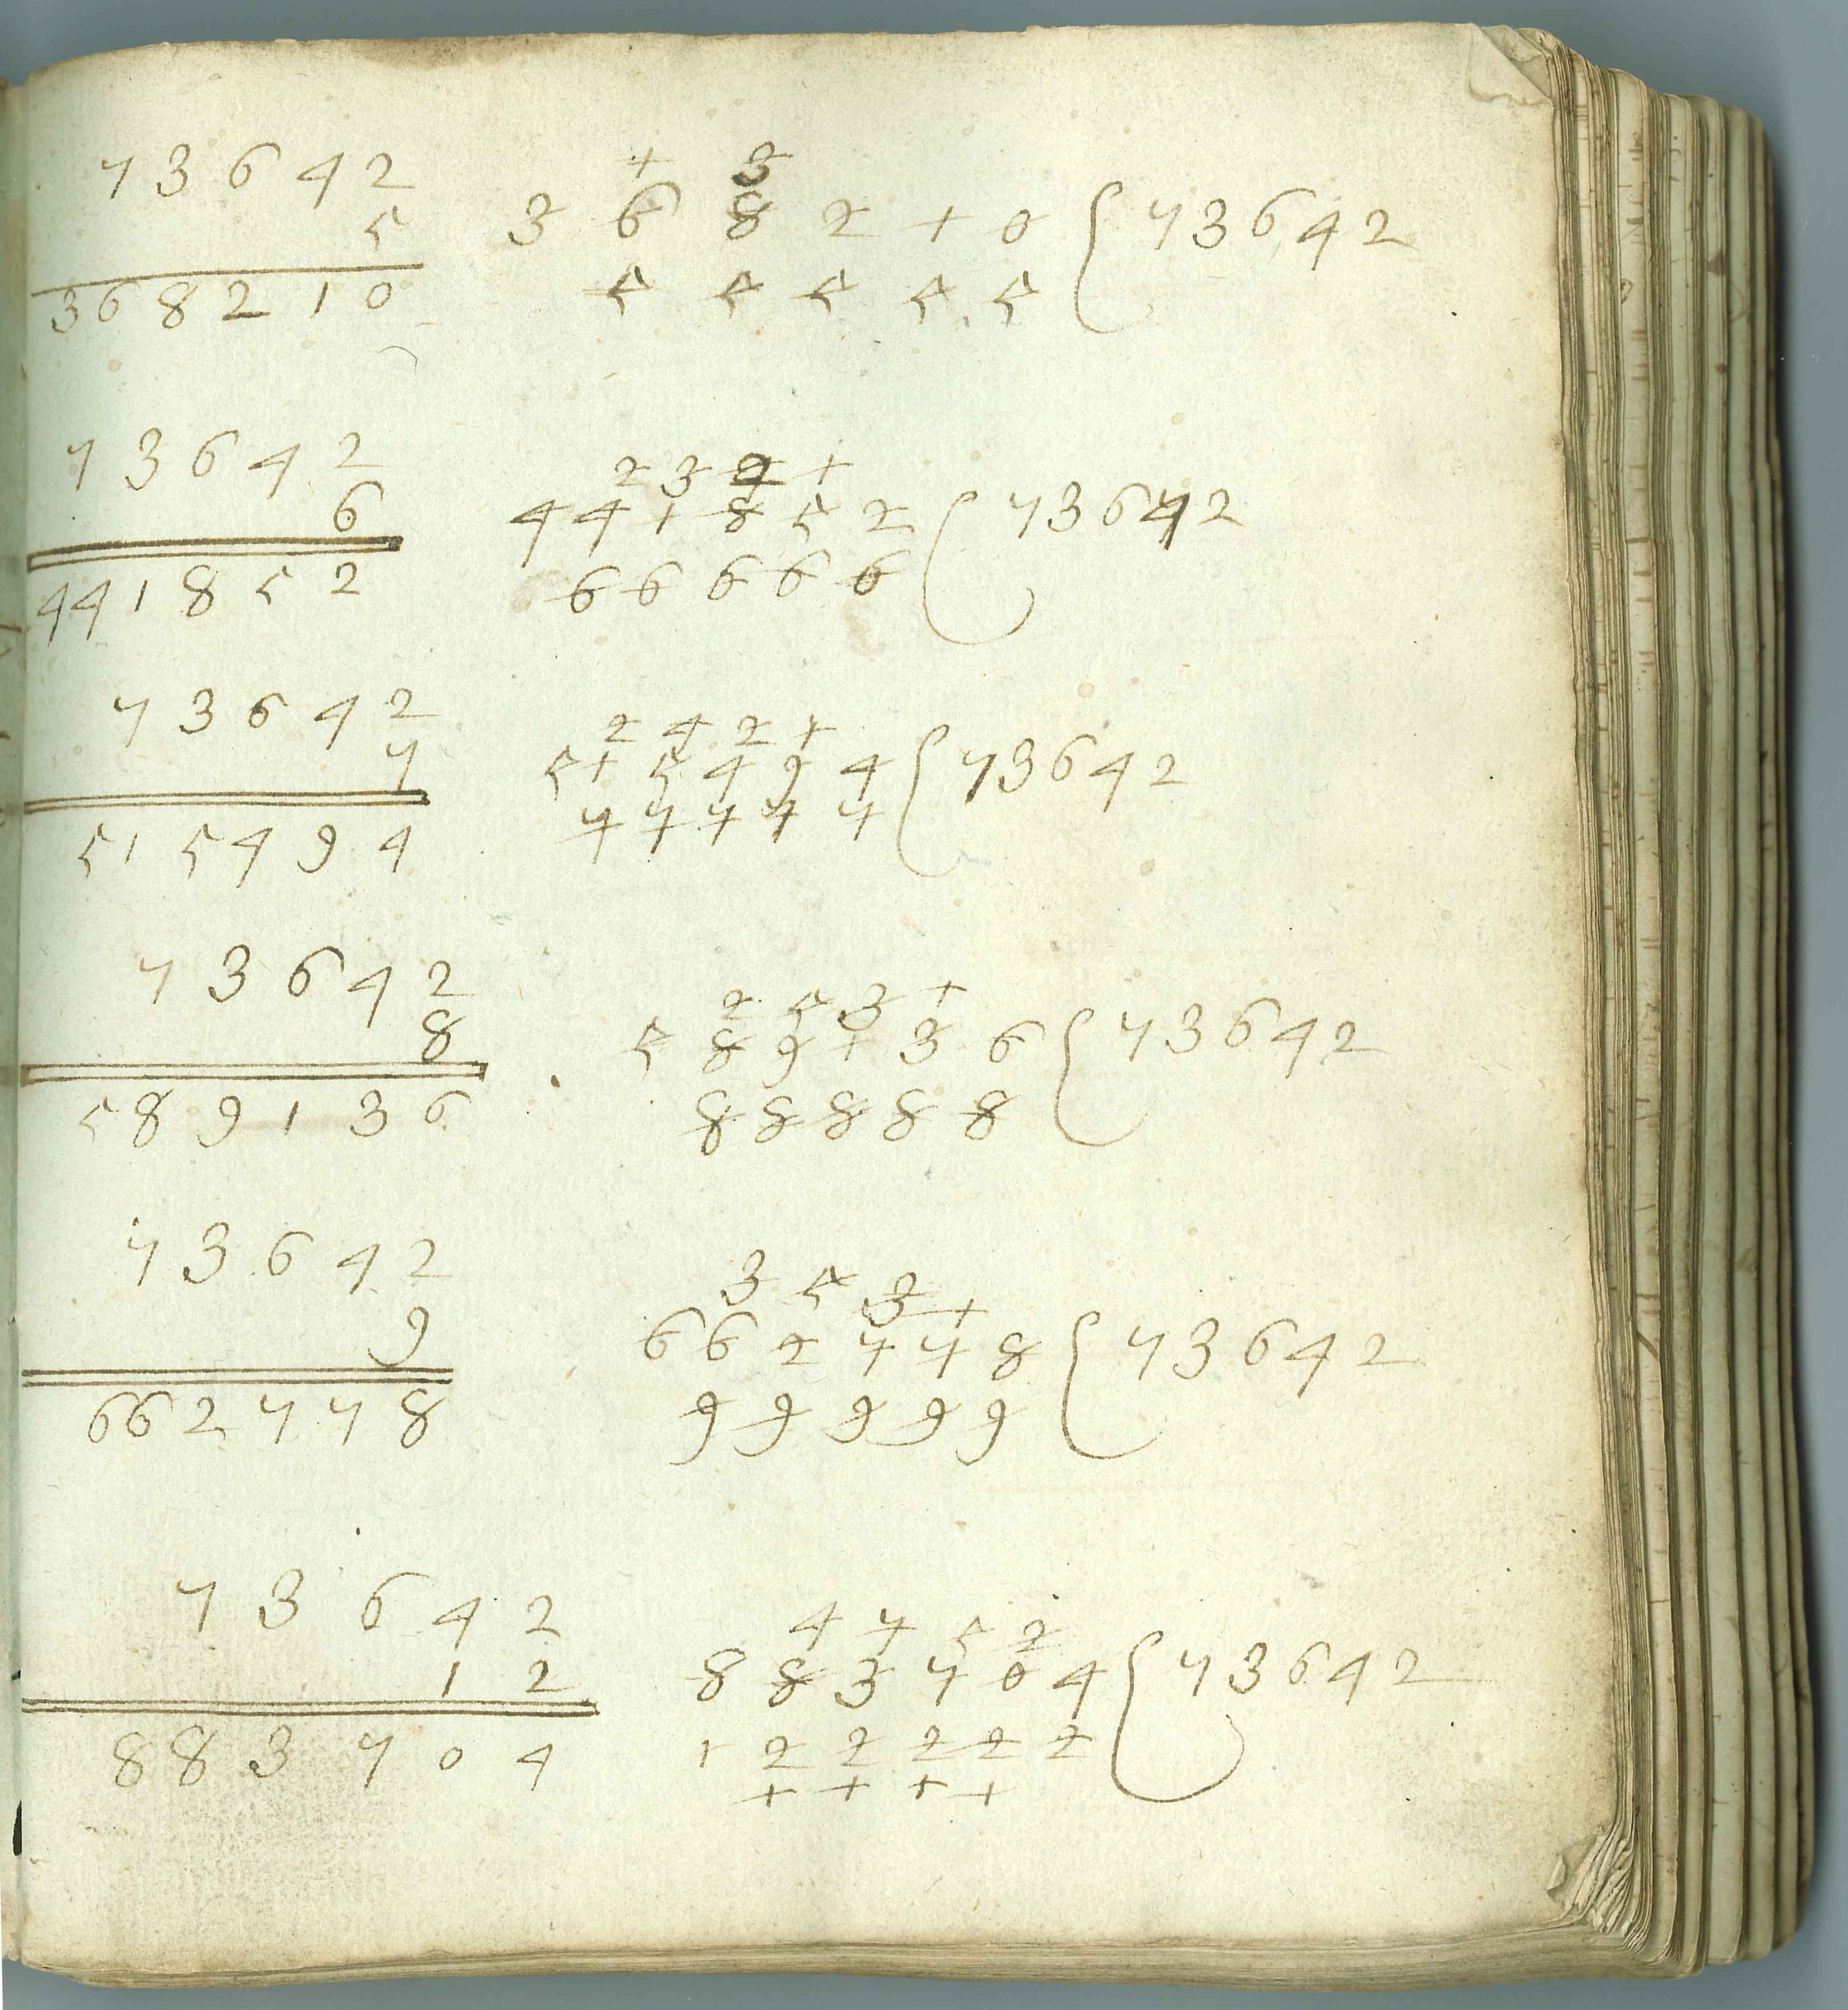 73642
5
368210
1 3
368210 { 73642
5 5 5 5 5
73642
6
441852
2 3 2 1
441852 ( 73642
6 6 6 6 6
73642
7
515494
2 4 2 1
515494 { 73642
7 7 7 7 7
73642
8
589136
2 5 3 1
589136 { 73642
8 8 8 8 8
73642
9
662778
3 5 3 1
662778 { 73642
9 9 9 9 9
73642
12
883704
4 7 5 2
883704 { 73642
1 2 2 2 2 2
1 1 1 1